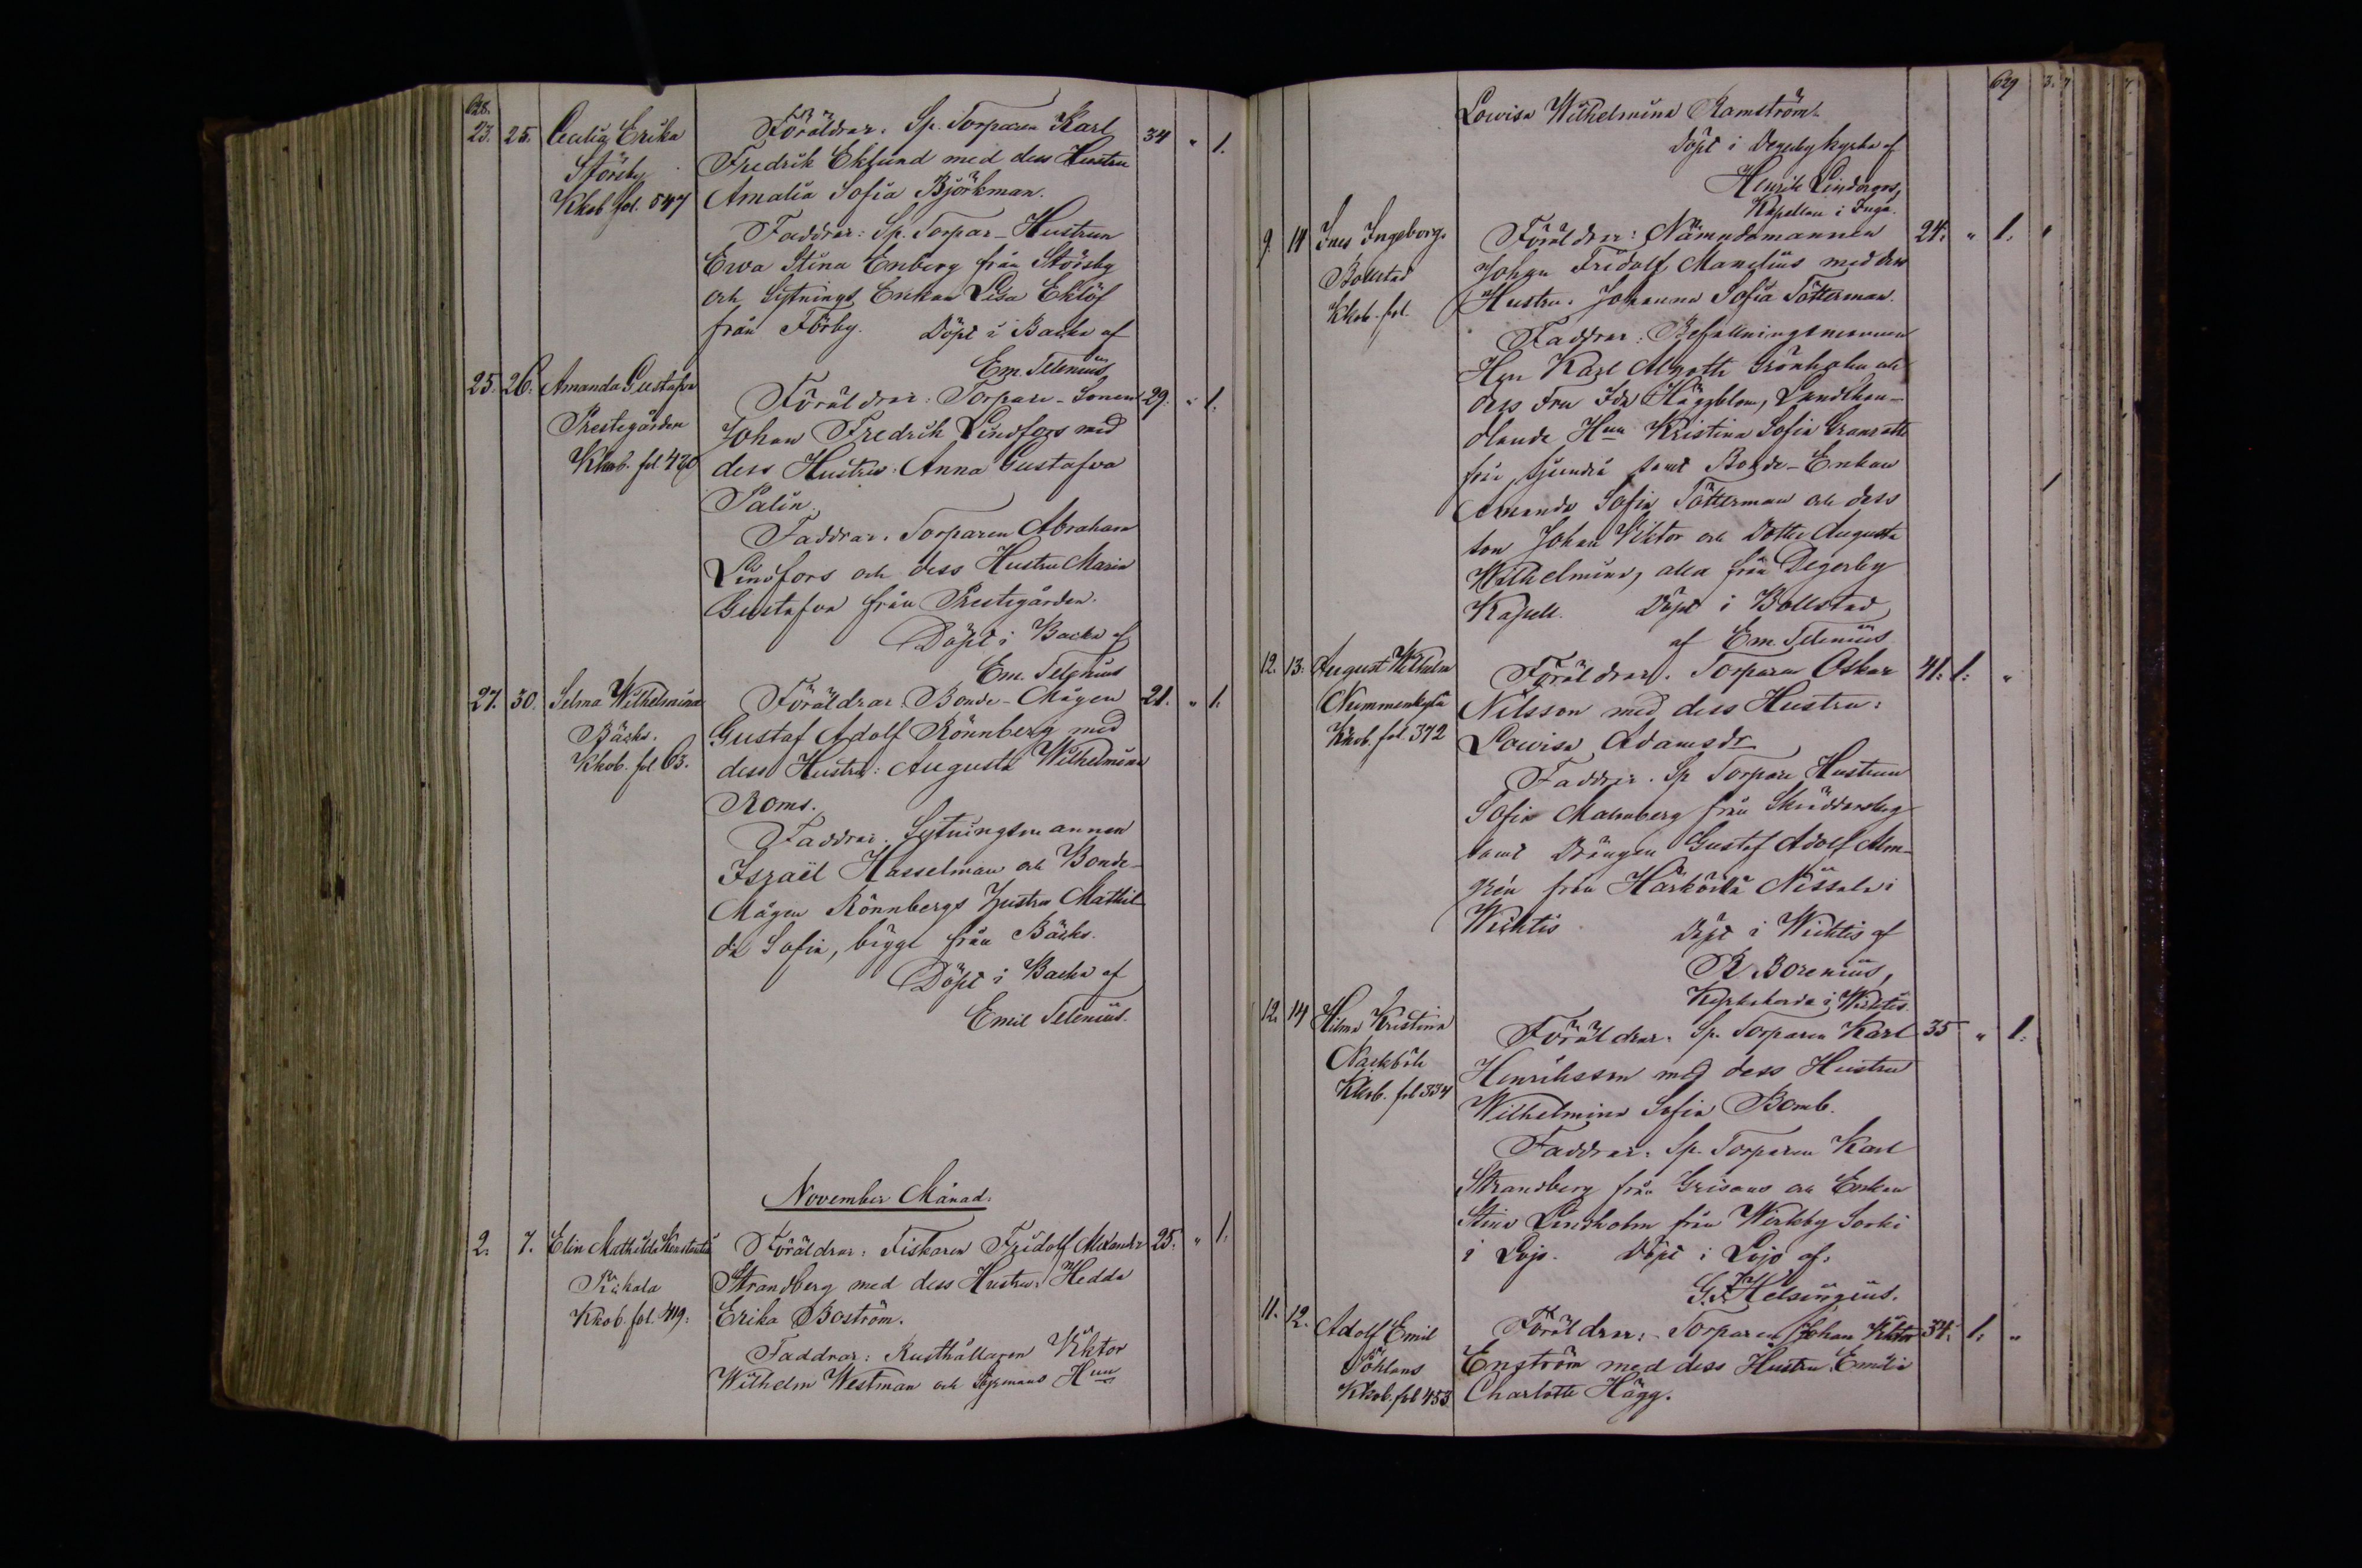 628.
23. 25. Cecilia Erika
Störsby
Kkob fol. 547
Föräldrar: Sp. Torparen Karl 34 " 1.
Fredrik Eklund med dess Hustru
Amalia Sofia Björkman.
Faddrar: Sp. Torpar-Hustrun
Ewa Stina Enberg från Störsby
och Sytnings Enkan Lisa Eklöf
från Förby. Döpt i Backa af
Em. Telenius
25. 26. Amanda Gustafva
Prestegården
Kkob. fol. 420
Föräldrar: Torpare-Sonen 29. " 1.
Johan Fredrik Lindfors med
dess Hustru: Anna Gustafva
Palin.
Faddrar: Torparen Abraham
Lindfors och dess Hustru Maria
Gustafva från Prestegården.
Döpt i Backa af
Em. Telenius
27. 30. Selma Wilhelmina
Bäcks.
Kkob. fol. 63.
Föräldrar: Bonde-Mågen 21. " 1.
Gustaf Adolf Rönnberg med
dess Hustru: Augusta Wilhelmina
Roms.
Faddrar: Sytningsmannen
Israël Hasselman och Bonde-
Mågen Rönnbergs Hustru Mathil-
da Sofia, bägge från Bäcks.
Döpt i Backa af
Emil Telenius.
November Månad.
2. 7. Elin Mathilda Konstantia
Räkala
Kkob. fol. 419.
Föräldrar: Fiskaren Fridolf Alexander 25. " 1.
Strandberg med dess Hustru: Hedda
Erika Boström.
Faddrar: Rusthållaren Viktor
Wilhelm Westman och Hun
629
Lowisa Wilhelmina Ramström.
Döpt i Degerby kyrka af
Henrik Lindergren,
Kapellan i Ingå.
9. 14 Ines Ingeborg.
Bollstad
Kkob. fol.
Föräldrar: Nämndemannen 24. " 1.
Johan Fridolf Manelius med dess
Hustru: Johanna Sofia Tötterman.
Faddrar: Befallningsmannen
Herr Karl Agath Grönholm och
dess Fru Ida Häggblom, Landthan-
dlande Hun Kristina Sofia
från samt Bonde-Enkan
Amanda Sofia Tötterman och dess
son Johan Viktor och Dotter Augusta
Wilhelmina, alla från Degerby
Kapell. Döpt i Bollstad
af Em. Telenius
12. 13. August Wilhelm
Nummenkylä
Kkob. fol. 372
Föräldrar: Torparen Oskar 41. 1. "
Nilsson med dess Hustru:
Lowisa Adamsdr
Faddrar: Sp Torpare Hustrun
Sofia Malmberg från Skräddarsby
samt Drängen Gustaf Adolf Alm-
grén från Härköilä Nissola i
Wichtis Döpt i Wichtis af
R. Borenius,
Kyrkoherde i Wichtis.
12. 14 Hilma Kristina
Backböle
Kkob. fol 334
Föräldrar: Sp. Torparen Karl 35 " 1.
Henriksson med dess Hustru
Wilhelmina Sofia Bomb.
Faddrar: Sp. Torparen Karl
Strandberg från Grisans och Enkan
Stina Lindholm från Wirkby Sorki
i Lojo. Döpt i Lojo af.
G. F. Helsingius.
11. 12. Adolf Emil
Pöklans
Kkob. fol 453.
Föräldrar: Torparen Johan Viktor 34. 1. "
Engström med dess Hustru Emilia
Charlotta Hägg.